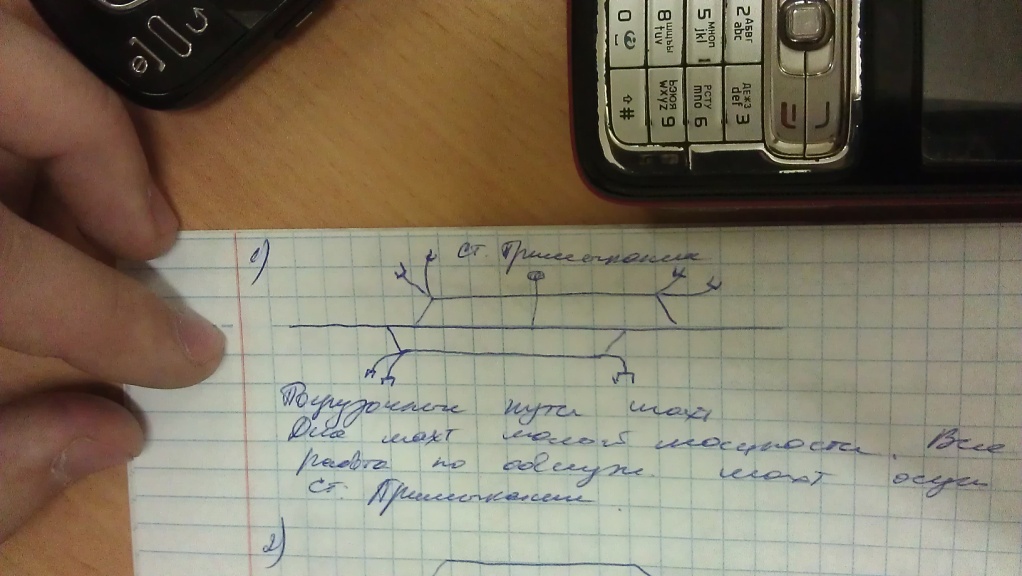 1) ст. Примыкания
Погрузочные пути шахт
Для шахт малой мощности. Вся
работа по обслуж. шахт осущ
ст. Примыкания
2)
2 АБВГ abc
5 МНОП jkl
8 ШЩЪЫ tuv
0
ДЕЖЗ def 3
РСТУ mno 6
ЬЭЮЯ wxyz 9
#